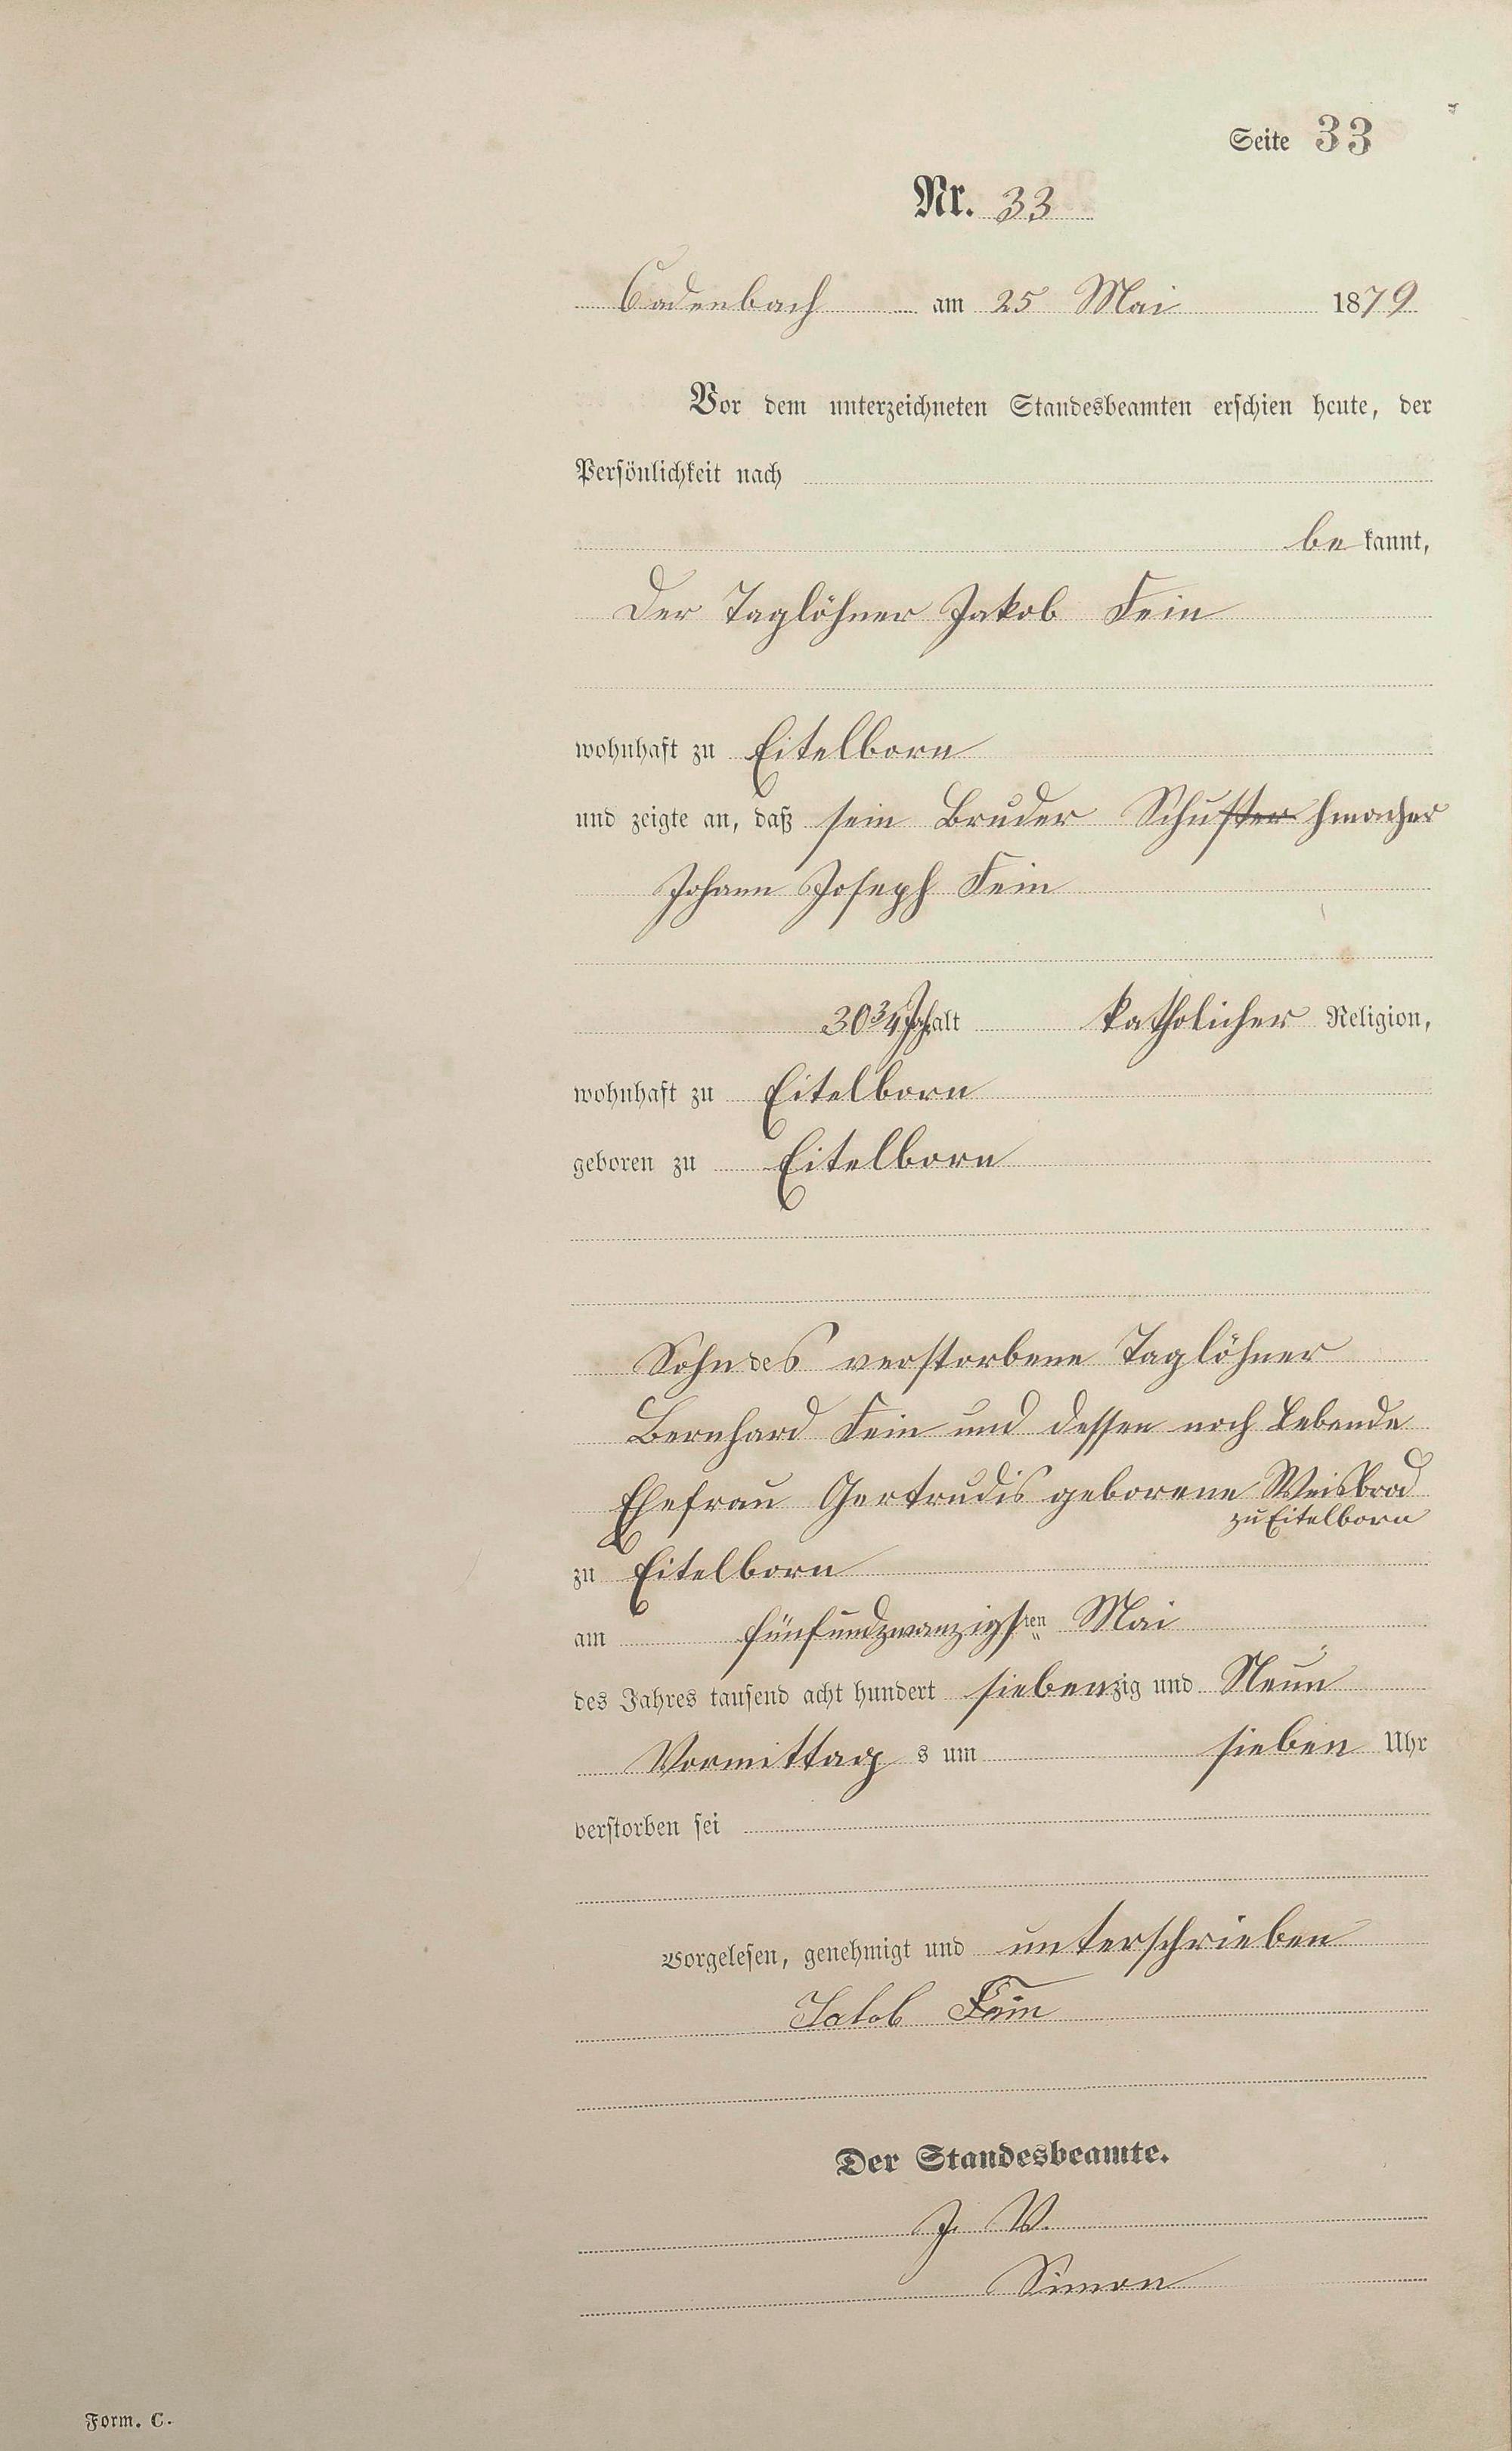 Seite 33
Nr. 33
Cadenbach am 25 Mai 1879
Vor dem unterzeichneten Standesbeamten erschien heute, der
Persönlichkeit nach
be kannt,
Der Taglöhner Jakob Fein
wohnhaft zu Eitelborn
und zeigte an, daß sein Bruder Schuster hmacher
Johann Joseph Fein
30 3/4 Jah alt katholicher Religion,
wohnhaft zu Eitelborn
geboren zu Eitelborn
Sohn des verstorbene Taglöhner
Bernhard Fein und dessen noch lebende
Ehefrau Gertrudis geborene Weisbrod
zu Eitelborn
zu Eitelborn
am fünfundzwanzigsten Mai
des Jahres tausend acht hundert siebenzig und Neun
Vormittag s um sieben Uhr
verstorben sei
Vorgelesen, genehmigt und unterschrieben
Jakob Fein
Der Standesbeamte.
J. V.
Simon
Form. C.